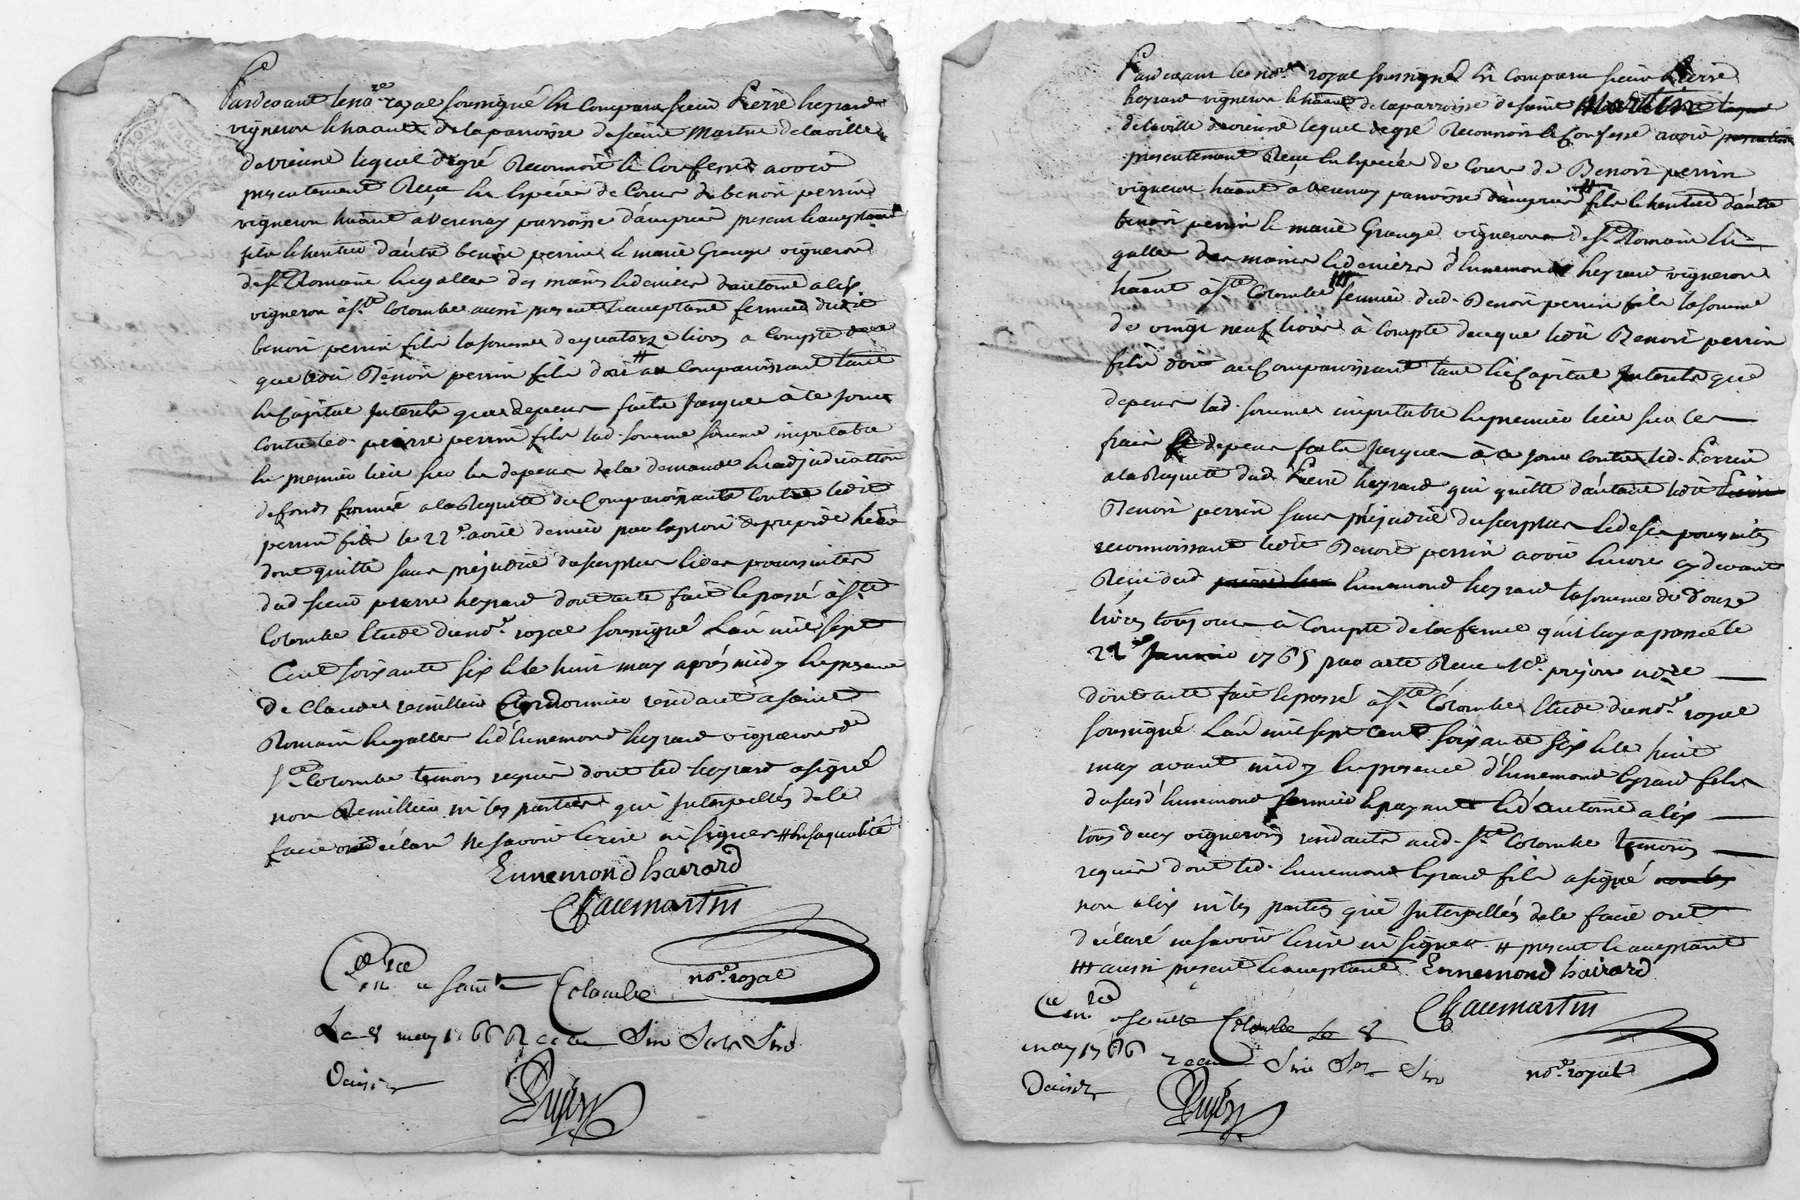 Pardevant le no.re royal soussigné En Compara sieur Pierre heyrard
vigneron h'aant de la parroisse de saint Martin de la ville
de vienne lequel de gré Reconnoit Et Confesse avoir
presentement Reçu En Espéces de Cours de benoit perrin
vigneron haant à Verenay parroisse d'ampuis present Et acceptant
fils Et heritier d'autre benoit perrin Et marie Grange vigneron
de St Romain En galles des mains Et deniers d'antoine alix
vigneron à Ste Colombe aussi present Et acceptant fermier dudit
benoit perrin fils la somme de quatorze livres a Compte de ce
que ledit Benoit perrin fils doit # au Comparoissant tant
En Capital Interets que depens faits jusques à ce jour
contre led. pierre perrin fils lad. somme imputable
En premier lieu sur les depens de la demande En adjudication
de fonds formée a la Requete du Comparoissant Contre ledit
perrin fils le 22e avril dernier
dont quitte sans prejudice du surplus Et des poursuites
dud sieur pierre heyrard dont acte fait Et passé à Ste
Colombe Etude du no.re royal soussigné L'an mil sept
Cent soixante six Et le huit may après midy En presence
de Claude remillieu Cordonnier residant à saint
Romain En galles Et d'Ennemond heyrard vigneron de
Ste Colombe temoins requis dont led heyrard a signé
non Remillieu ni les parties qui Interpellés de le
faire ont déclaré ne savoir Ecrire ni signer # En sa qualité
Ennemond hairard
Chaumartin
no.re royal
a sainte Colombe
Le 8 may 1766 Reçu Six Sols Six
Deniers
Pardevant le no.re royal soussigné En Compara sieur Pierre
heyrard vigneron h'aant de la parroisse de saint Martin
de la ville de vienne lequel de gré Reconnoit Et Confesse avoir
presentement Reçu En Espéces de Cours de Benoit perrin
vigneron haant à Verenay parroisse d'ampuis # fils Et heritier d'autre
benoit perrin Et marie Grange vigneron de St Romain En
galles des mains Et deniers d'Ennemond heyrard vigneron
haant à Ste Colombe ### fermier dud. Benoit perrin fils la somme
de vingt neuf livres à Compte de ce que ledit Benoit perrin
fils doit au Comparoissant tant En Capital Interets que
depens lad. somme imputable En premier lieu sur les
frais Et depens faits jusques à ce jour contre led. Perrin
a la Requete dud. Pierre heyrard qui quitte d'autant ledit
Benoit perrin sans prejudice du surplus Et de ses poursuites
reconnoissant ledit Benoit perrin avoir Encore cy devant
Reçu dud Ennemond heyrard la somme de douze
livres tous ours à Compte de la ferme qu'il luy a passé le
22e Janvier 1765 par acte Reçu Me. prejon no.re
dont acte fait Et passé à Ste Colombe Etude du no.re royal
soussigné L'an mil sept Cent soixante six Et le huit
may avant midy En presence d'Ennemond heyrard fils
dud. Ennemond fermier Et payant Et d'antoine alix
tous deux vignerons residants aud. Ste Colombe temoins
requis dont led. Ennemond heyrard fils a signé
non alix ni les parties qui Interpellés de le faire ont
declaré ne savoir Ecrire ni signer # present Et acceptant
### aussi present Et acceptant Ennemond hairard
Chaumartin
no.re royal
a sainte Colombe Le 8
may 1766 reçu Six Sols Six
Deniers